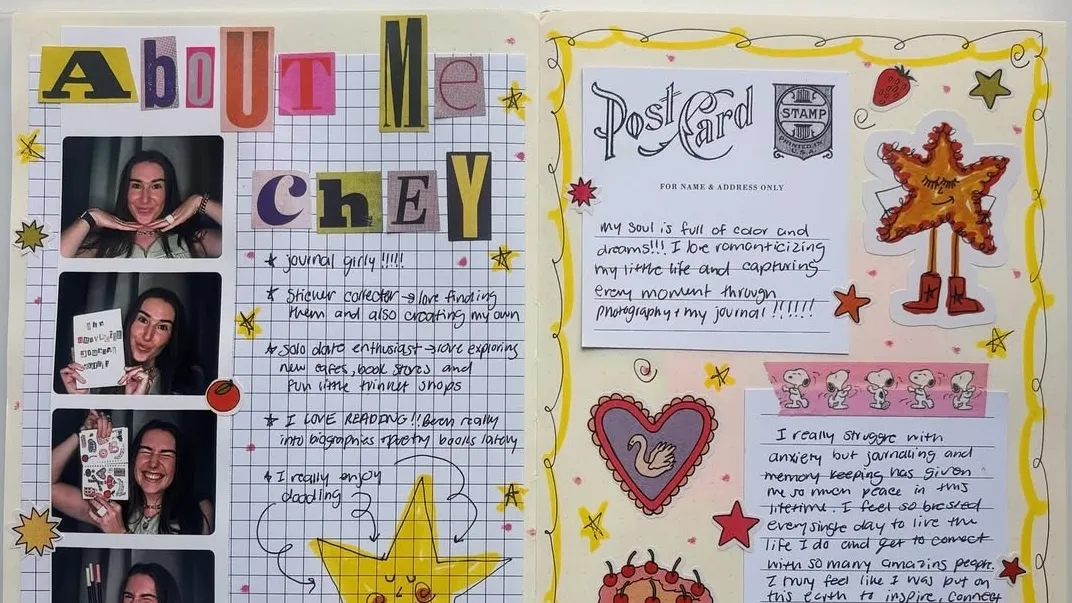 AboUT Me
ChEY
journal girly !!!!!
Sticker collector → love finding
them and also creating my own
solo date enthusiast → love exploring
new cafes, book stores and
fun little trinket shops
I LOVE READING!! Been really
into biographies + poetry books lately
I really enjoy
doodling
Post Card
STAMP
PRINTED IN
U.S.A.
FOR NAME & ADDRESS ONLY
my soul is full of color and
dreams!!! I love romanticizing
my little life and capturing
every moment through
photography + my journal !!!!!!
I really struggle with
anxiety but journaling and
memory keeping has given
me so much peace in this
lifetime. I feel so blessed
every single day to live the
life I do and get to connect
with so many amazing people.
I truly feel like I was put on
this earth to inspire, connect